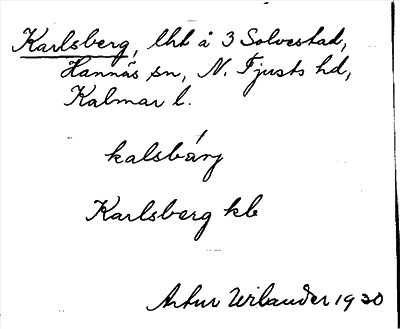 Karlsberg, lht å 3 Solvestad,
Hannäs sn, N. Tjusts hd,
Kalmar l.
kalsbárj
Karlsberg kb
Artur Wilander 1920